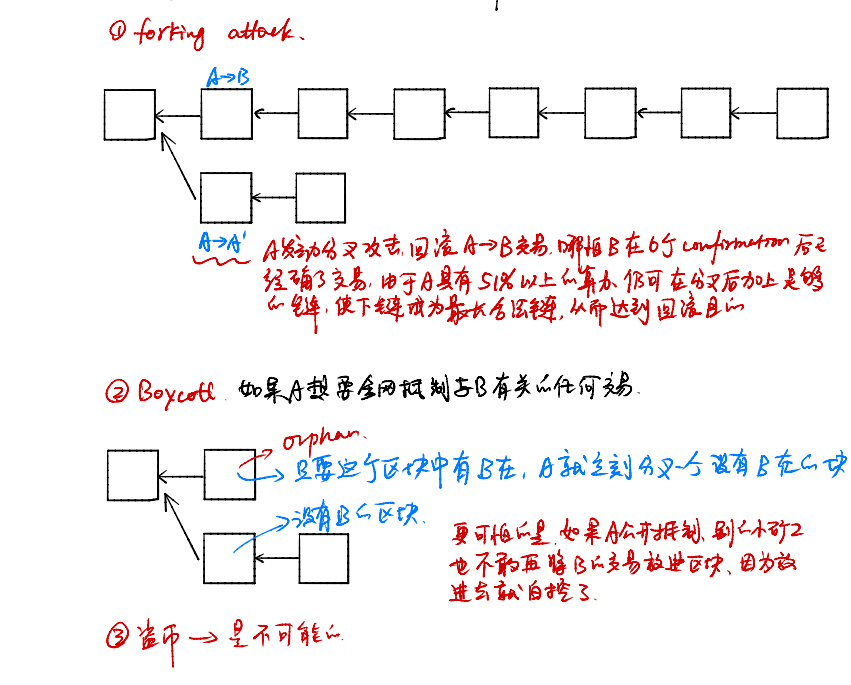 ① forking attack.
A→B
A→A'
A发动分叉攻击,回滚A→B交易,哪怕B在6个confirmation后已
经确了交易,由于A具有51%以上的算力,仍可在分叉后加上足够
的链,使下链成为最长合法链,从而达到回滚目的
② Boycott. 如果A想要全网抵制与B有关的任何交易.
orphan.
只要这个区块中有B在,A就立刻分叉一个没有B在的块
没有B的区块.
更可怕的是,如果A公开抵制,别的小矿工
也不敢再将B的交易放进区块,因为放
进去就白挖了.
③ 盗币 → 是不可能的